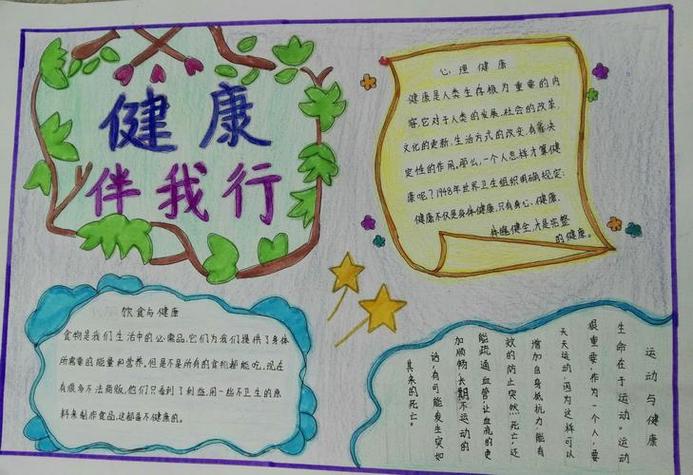 健康
伴我行
心理健康
健康是人类生存极为重要的内
容,它对于人类的发展,社会的改革,
文化的更新,生活方式的改变,有着决
定性的作用。那么,一个人怎样才算健
康呢?1948年世界卫生组织明确规定:
健康不仅是身体健康,只有身心、健康、
体魄健全,才是完整
的健康。
饮食与健康
食物是我们生活中的必需品,它们为我们提供了身体
所需要的能量和营养,但是不是所有的食物都能吃,现在
有很多不法商贩,他们只看到了利益,用一些不卫生的原
料来制作食品,这都是不健康的。
运动与健康
生命在于运动。运动
很重要,作为一个人,要
天天运动,因为这样可以
增加自身抵抗力,能有
效的防止突然死亡,还
能疏通血管,让血流的更
加顺畅,长期不运动的
话,有可能发生突如
其来的死亡。